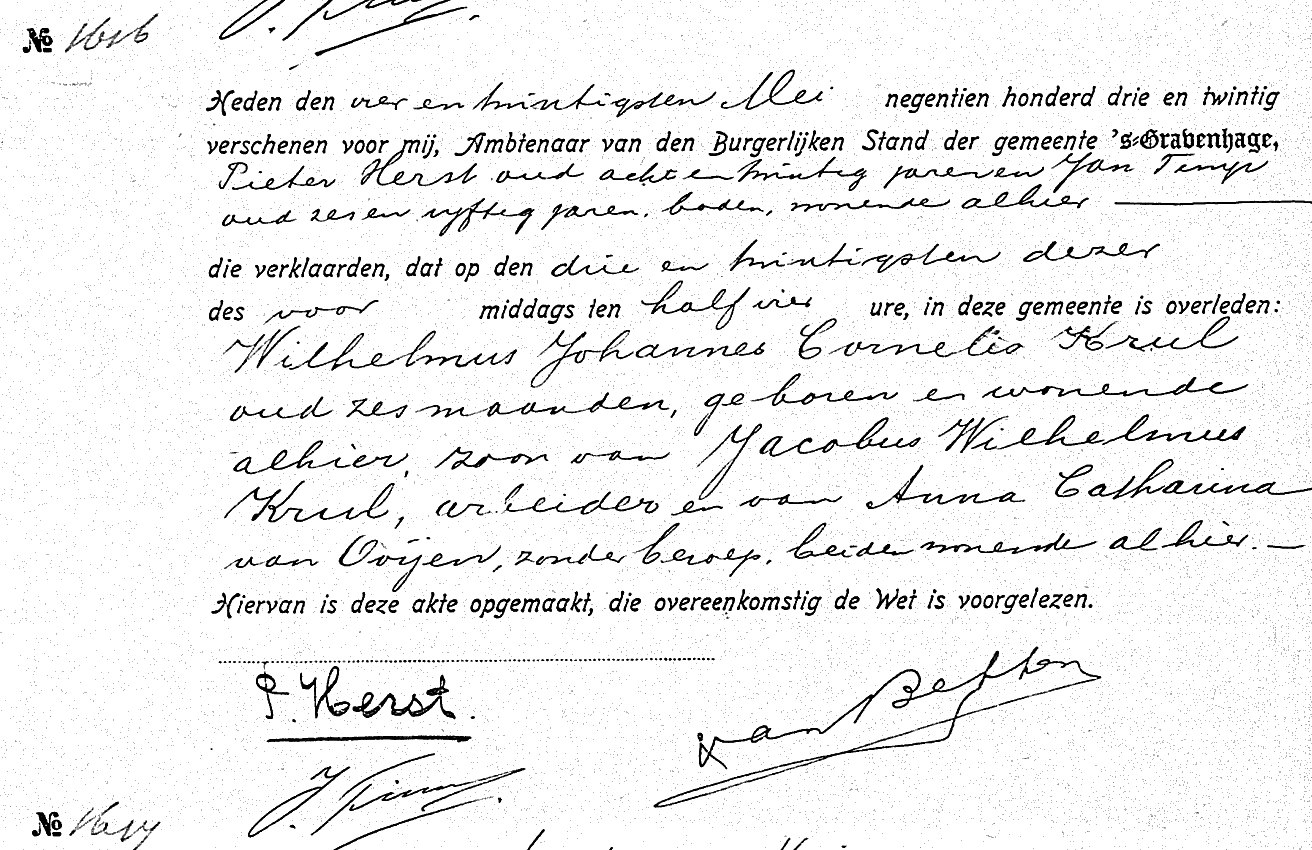 № 1616
Heden den vier en twintigsten Mei negentien honderd drie en twintig
verschenen voor mij, Ambtenaar van den Burgerlijken Stand der gemeente 's-Gravenhage,
Pieter Herst oud acht en twintig jaren en Jan Timp
oud zes en vyftig jaren, boden, wonende alhier
die verklaarden, dat op den drie en twintigsten dezer
des voor middags ten half vier ure, in deze gemeente is overleden:
Wilhelmus Johannes Cornelis Krul
oud zes maanden, geboren en wonende
alhier, zoon van Jacobus Wilhelmus
Krul, arbeider en van Anna Catharina
van Ooijen, zonder beroep, beiden wonende alhier.
Hiervan is deze akte opgemaakt, die overeenkomstig de Wet is voorgelezen.
P. Herst.
van
J. Timp
№